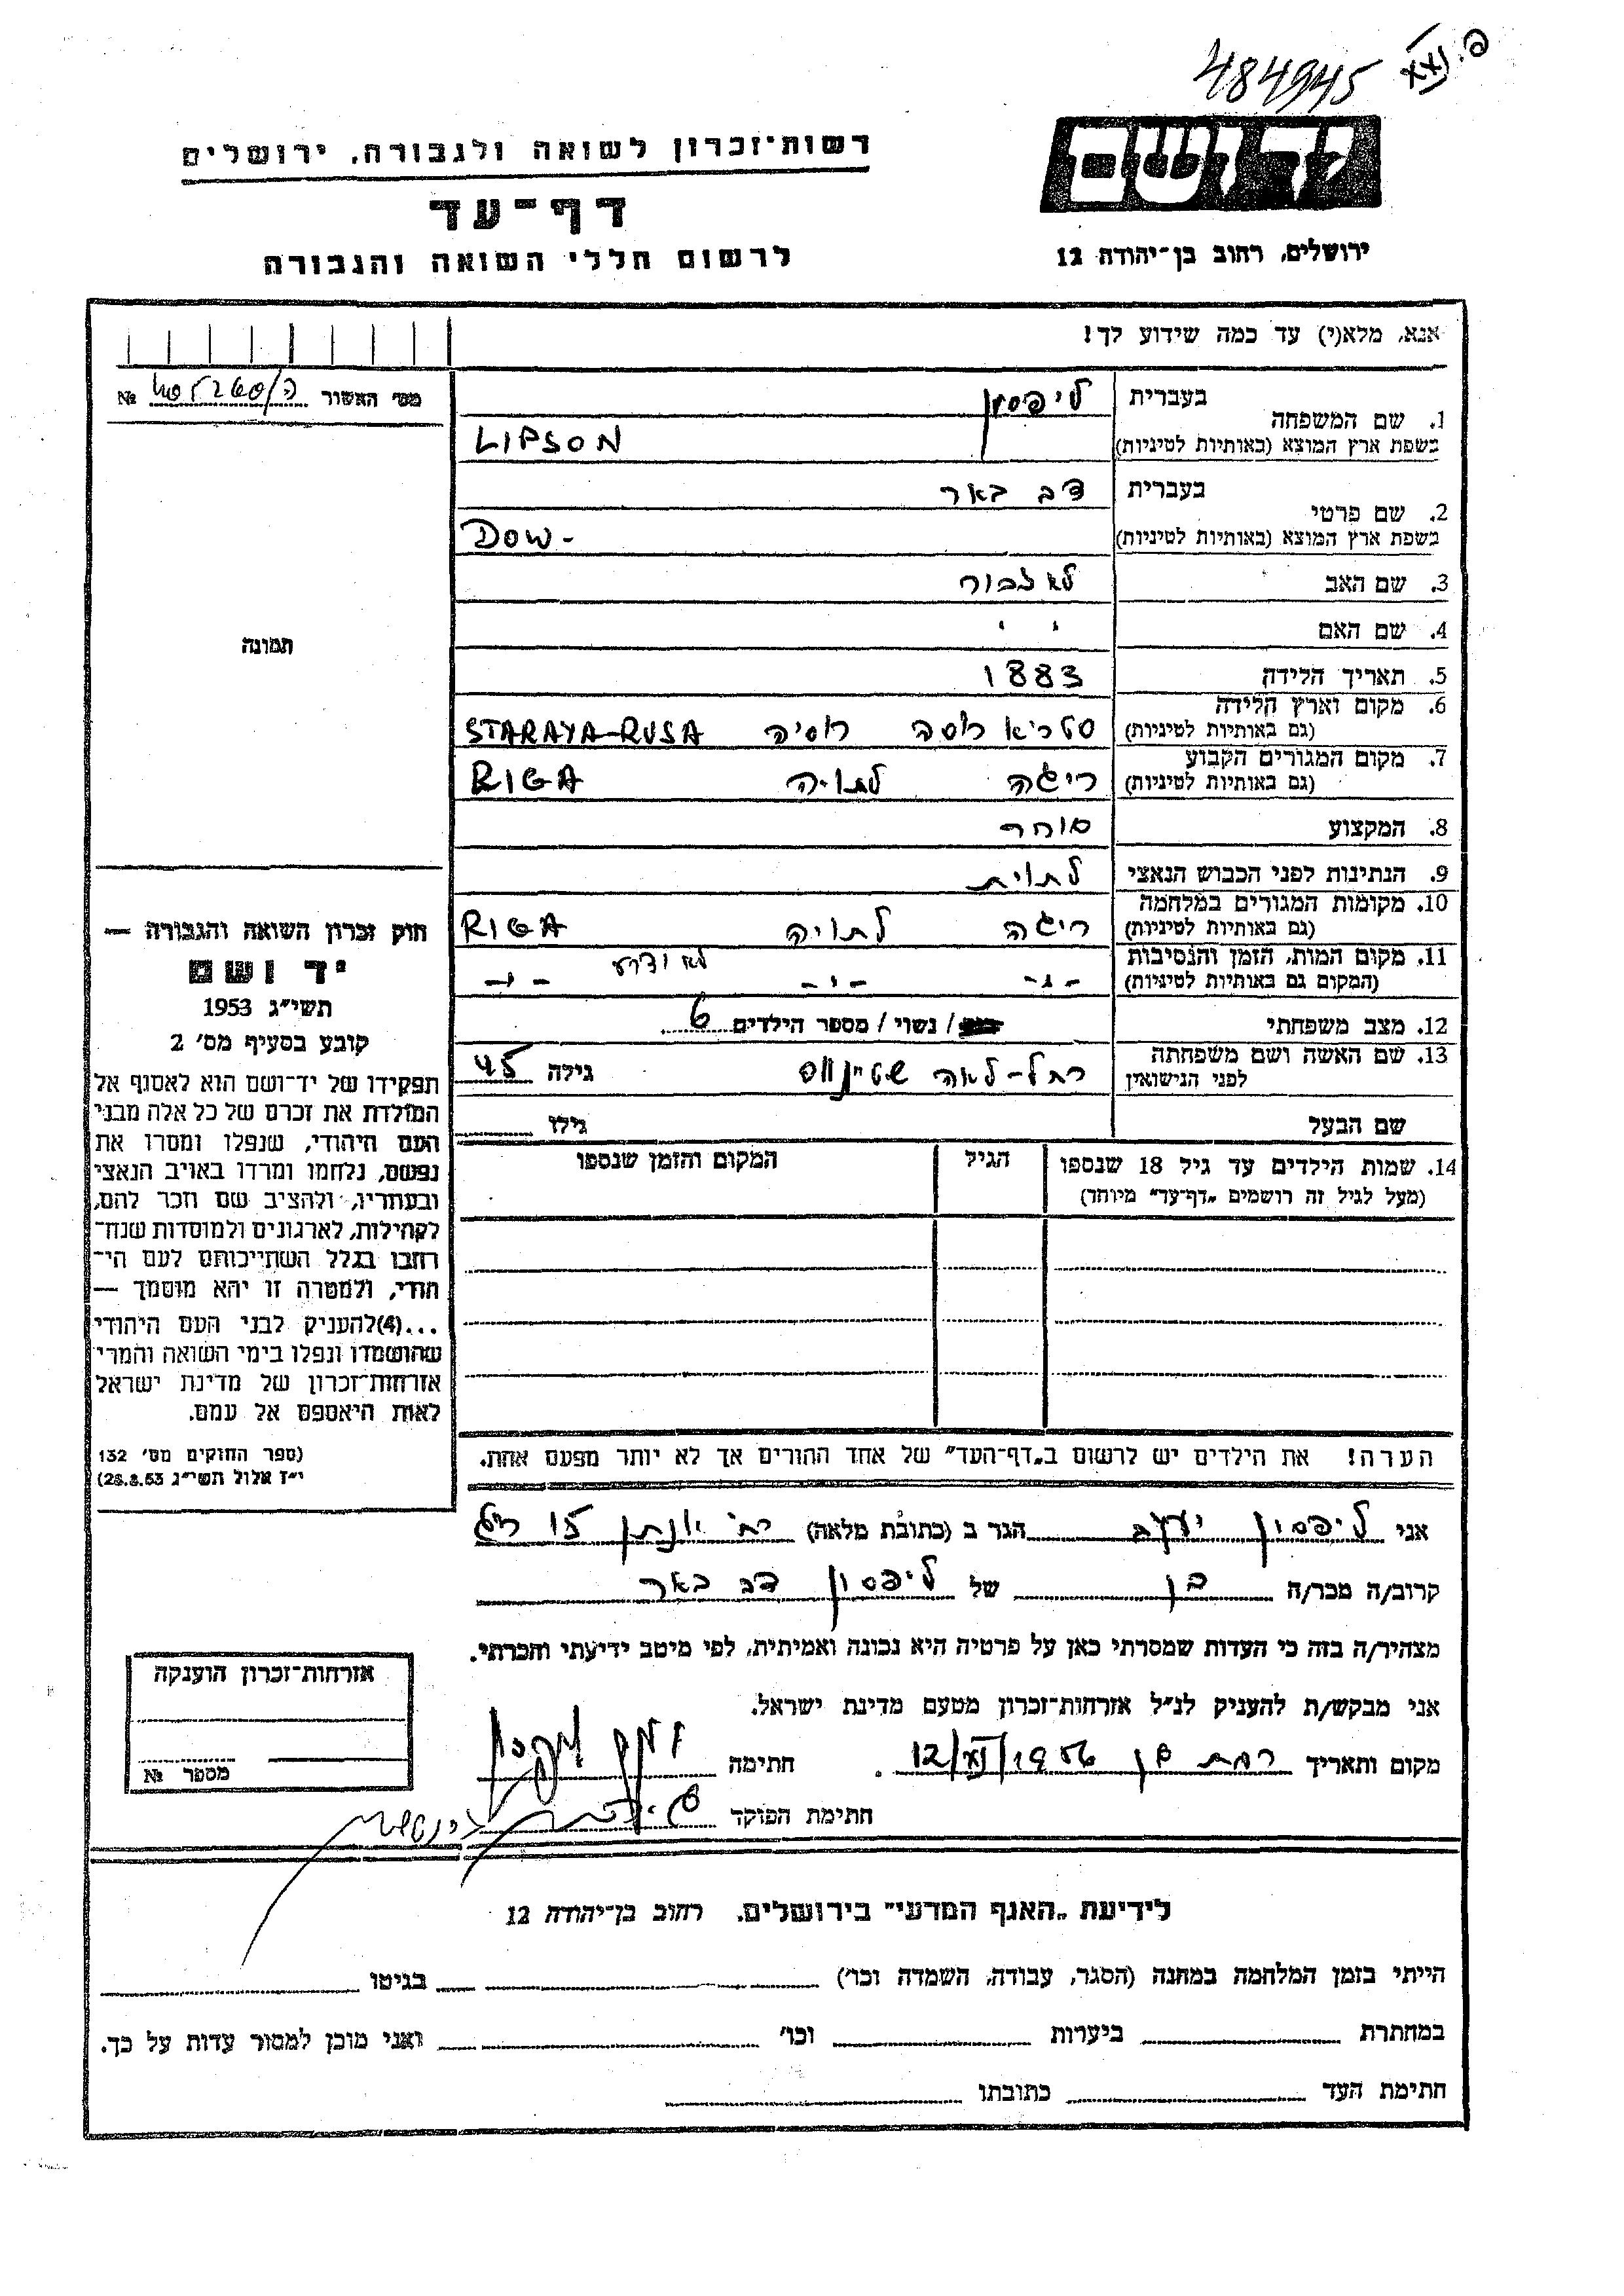 484945
יד ושם
ירושלים, רחוב בן־יהודה 12
רשות־זכרון לשואה ולגבורה, ירושלים
דף־עד
לרשום חללי השואה והגבורה
אנא, מלא(י) עד כמה שידוע לך!
מס' האשור №
1. שם המשפחה
בעברית ליפסון
בשפת ארץ המוצא (באותיות לטיניות) LIPSON
2. שם פרטי
בעברית דב באר
בשפת ארץ המוצא (באותיות לטיניות) DOW-
3. שם האב לאזבור
4. שם האם
5. תאריך הלידה 1883
6. מקום וארץ הלידה
(גם באותיות לטיניות) סטריא רוסה רוסיה STARAYA-RUSA
7. מקום המגורים הקבוע
(גם באותיות לטיניות) ריגה לתויה RIGA
8. המקצוע סוחר
9. הנתינות לפני הכבוש הנאצי לתוית
10. מקומות המגורים במלחמה
(גם באותיות לטיניות) ריגה לתויה RIGA
11. מקום המות, הזמן והנסיבות לא ודוע
(המקום גם באותיות לטיניות)
12. מצב משפחתי / נשוי / מספר הילדים 6
13. שם האשה ושם משפחתה
לפני הנישואין רחל-לאה גילה 45
שם הבעל גילו
14. שמות הילדים עד גיל 18 שנספו הגיל המקום והזמן שנספו
(מעל לגיל זה רושמים „דף־עד" מיוחד)
הערה! את הילדים יש לרשום ב„דף־העד" של אחד ההורים אך לא יותר מפעם אחת.
תמונה
חוק זכרון השואה והגבורה —
יד ושם
תשי"ג 1953
קובע בסעיף מס' 2
תפקידו של יד־ושם הוא לאסוף אל
המולדת את זכרם של כל אלה מבני
העם היהודי, שנפלו ומסרו את
נפשם, נלחמו ומרדו באויב הנאצי
ובעוזריו, ולהציב שם וזכר להם,
לקהילות, לארגונים ולמוסדות שנח־
רבו בגלל השתייכותם לעם הי־
הודי, ולמטרה זו יהא מוסמך —
...(4)להעניק לבני העם היהודי
שהושמדו ונפלו בימי השואה והמרי
אזרחות־זכרון של מדינת ישראל
לאות היאספם אל עמם.
(ספר החוקים מס' 132
י"ז אלול תשי"ג 28.8.53)
אני ליפסון יעקב הגר ב (כתובת מלאה) רח' יונתן 15
קרוב/ה מכר/ה בן של ליפסון דב באר
מצהיר/ה בזה כי העדות שמסרתי כאן על פרטיה היא נכונה ואמיתית, לפי מיטב ידיעתי והכרתי.
אני מבקש/ת להעניק לנ"ל אזרחות־זכרון מטעם מדינת ישראל.
מקום ותאריך רמת גן 12/XI/1956 חתימה
חתימת הפוקד
אזרחות־זכרון הוענקה
מספר №
לידיעת „האגף המדעי" בירושלים, רחוב בן־יהודה 12
הייתי בזמן המלחמה במחנה (הסגר, עבודה, השמדה וכו') בגיטו
במחתרת ביערות וכו' ואני מוכן למסור עדות על כך.
חתימת העד כתובתו